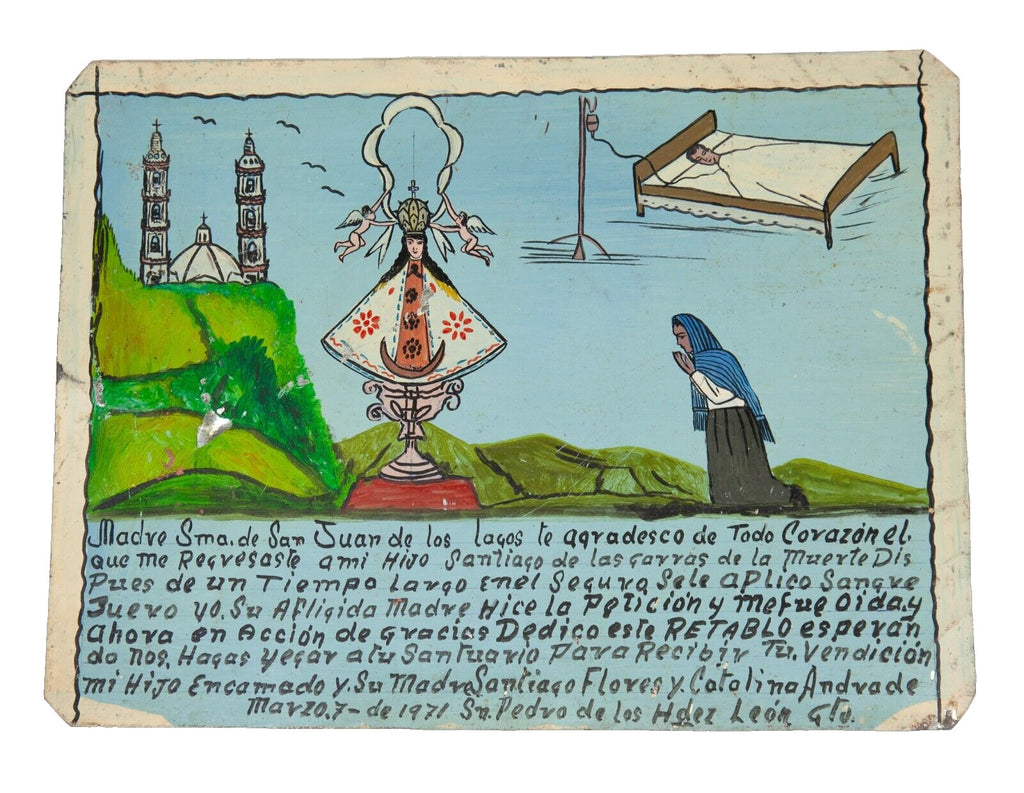 Madre Sma. de San Juan de los lagos te agradesco de Todo Corazón el.
que me Regresaste ami Hijo Santiago de las garras de la Muerte Dis
Pues de un Tiempo Largo Enel Seguro Sele aplico Sangre
Suero yo. Su Afligida Madre Hice la Petición y Mefue Oida. y
ahora en Acción de gracias Dedico este RETABLO esperan
do nos. Hagas yegar atu Santuario Para Recibir Tu. Vendición
mi Hijo Encamado y. Su Madre Santiago Flores y. Catalina Andrade
Marzo, 7- de 1971 Sn. Pedro de los Hdez León Gto.